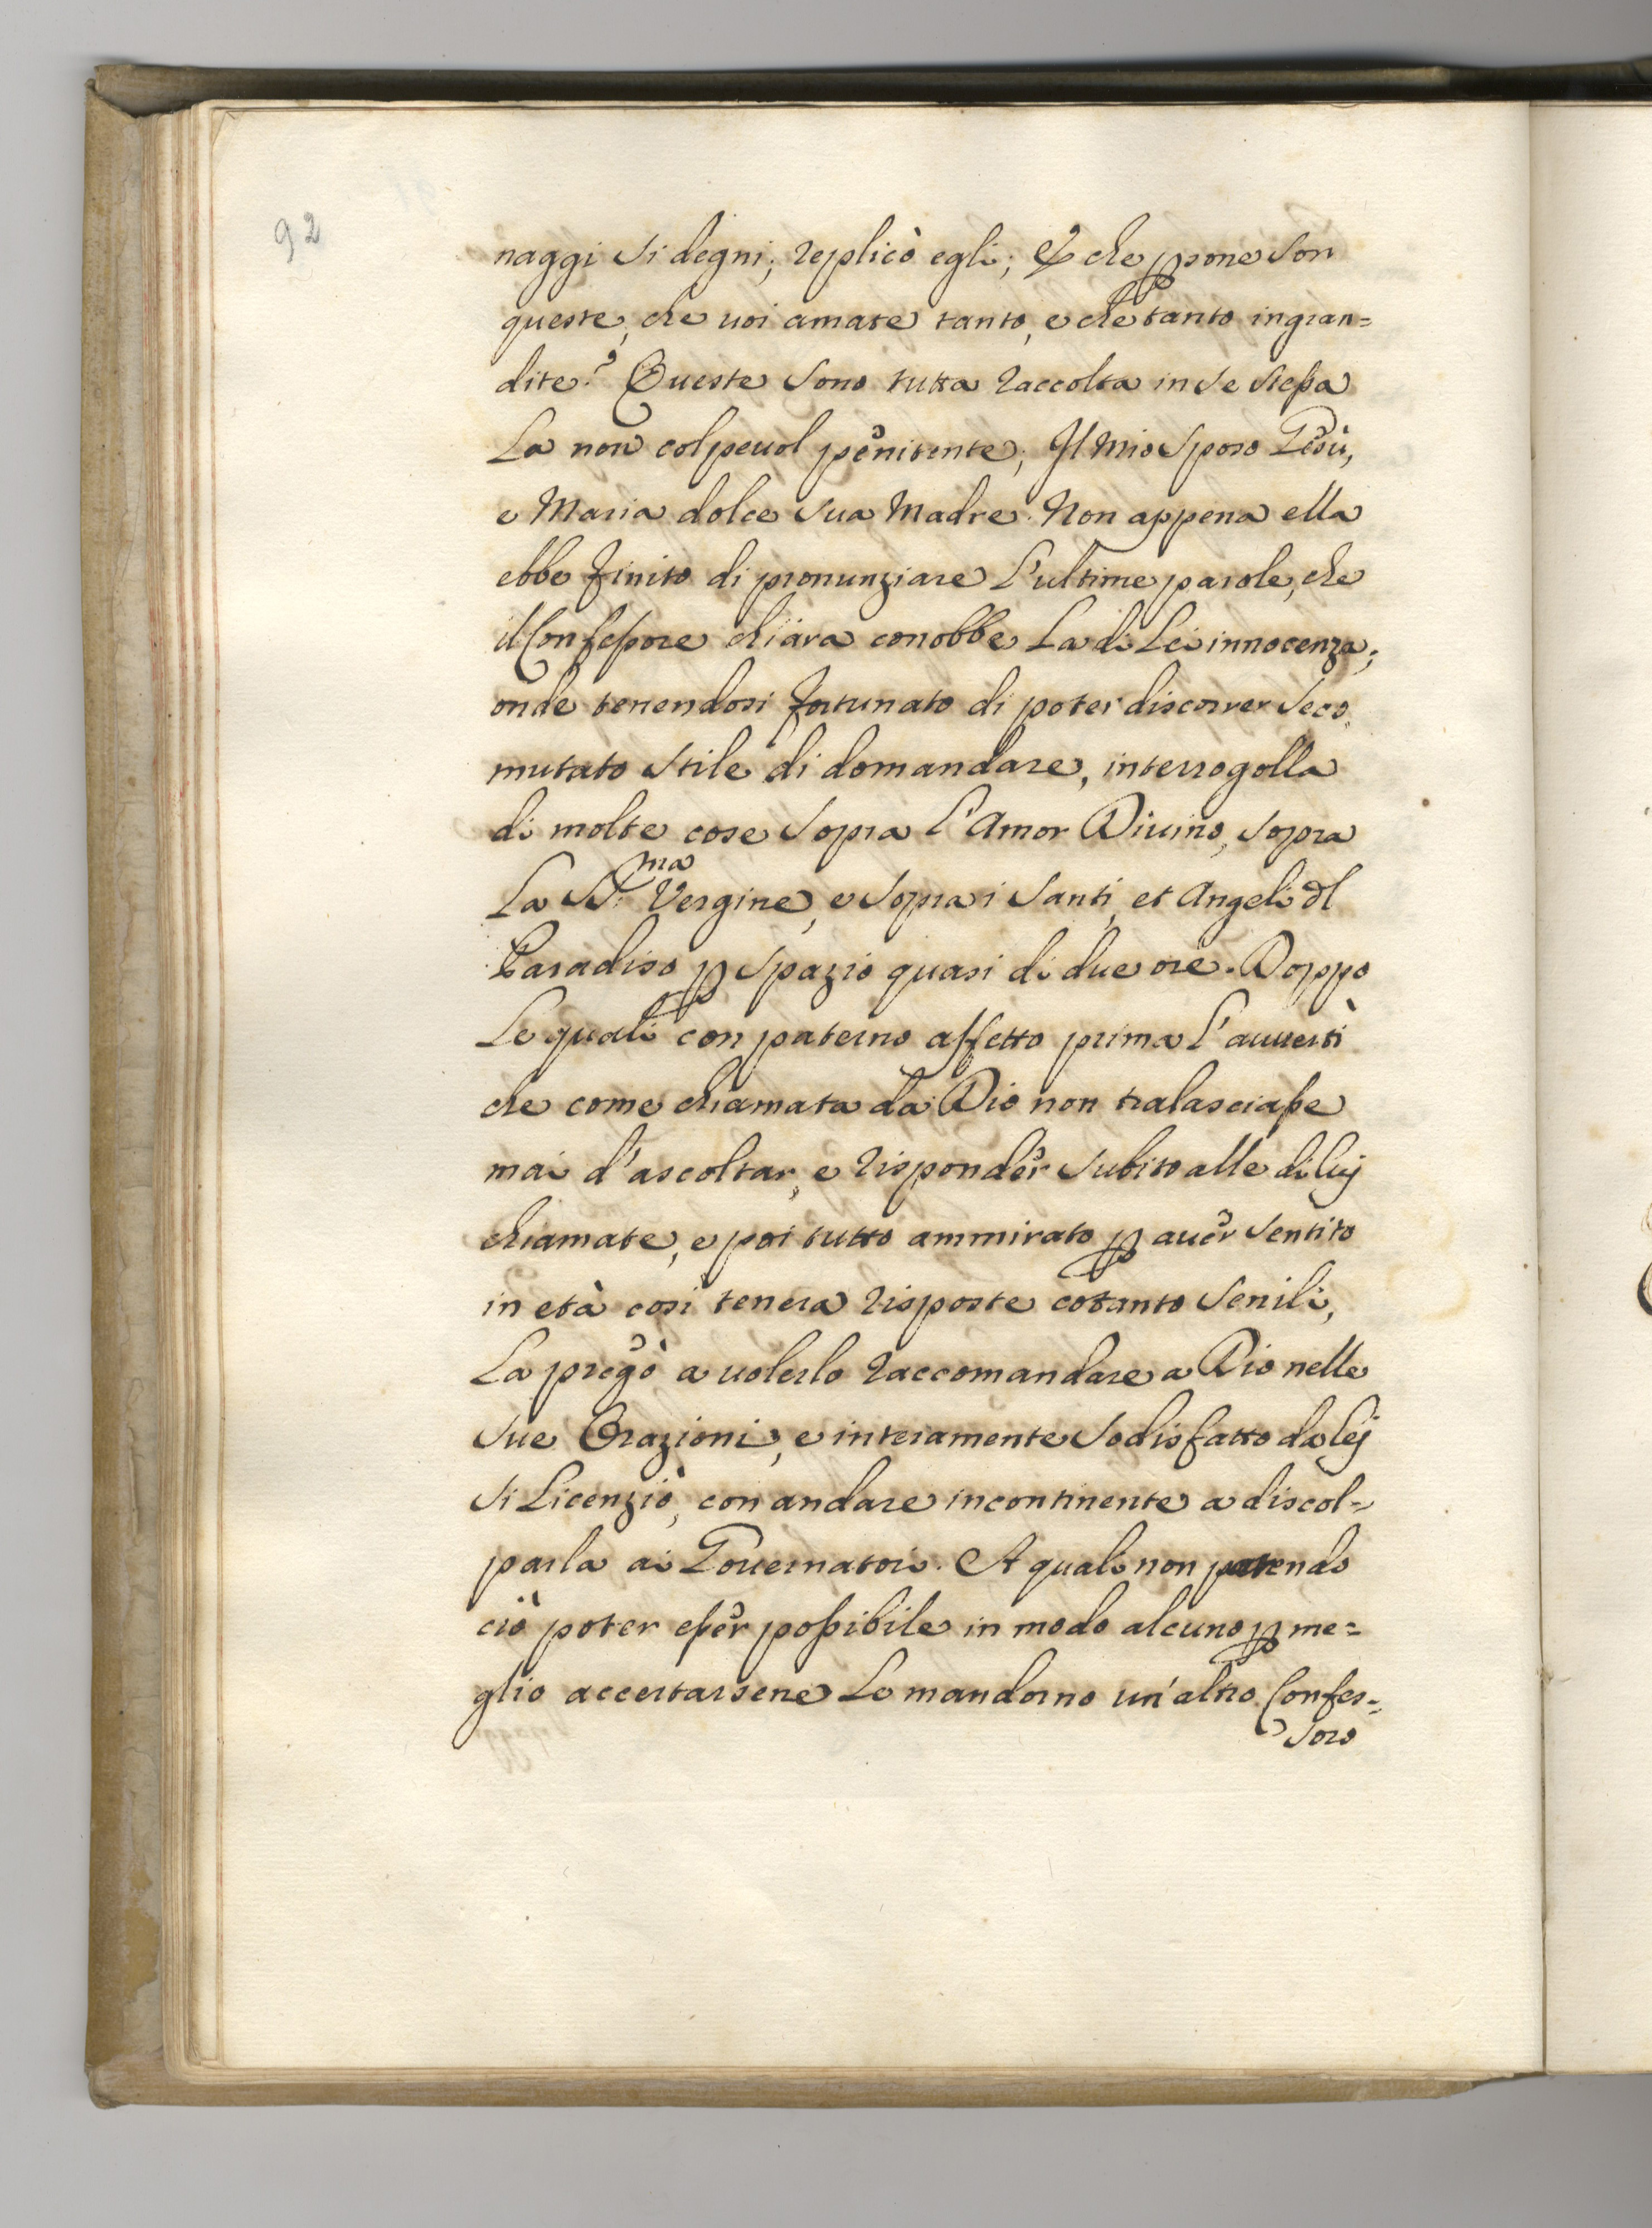 92
naggi si degni; replicò egli; Et che ꝑsone son
queste, che uoi amate tanto, e che tanto ingran=
dite? Queste sono tutta raccolta in se stessa
La non colpeuol penitente; Il mio sposo Gesù,
e Maria dolce sua Madre. Non appena ella
ebbe finito di pronunziare l'ultime parole, che
il Confessore chiara conobbe La di Lei innocenza;
onde tenendosi fortunato di poter discorrer seco,
mutato stile di domandare, interrogolla
di molte cose sopra l'Amor Diuino, sopra
La SS.ma Vergine, e sopra i Santi, et Angeli dl
Paradiso ꝑ spazio quasi di due ore. Doppo
Le quali con paterno affetto prima l'auuertì
che come chiamata da Dio non tralasciasse
mai d'ascoltar, e risponder subito alle di luj
chiamate, e poi tutto ammirato ꝑ auer sentito
in età così tenera risposte cotanto senili,
La pregò a uolerlo raccomandare a Dio nelle
sue Orazioni, e interamente sodisfatto da lej
si Licenziò, con andare incontinente a discol=
parla ai Gouernatori. A quali non parendo
ciò poter esser possibile in modo alcuno ꝑ me=
glio accertarsene Le mandorno un'altro Confes=
soro